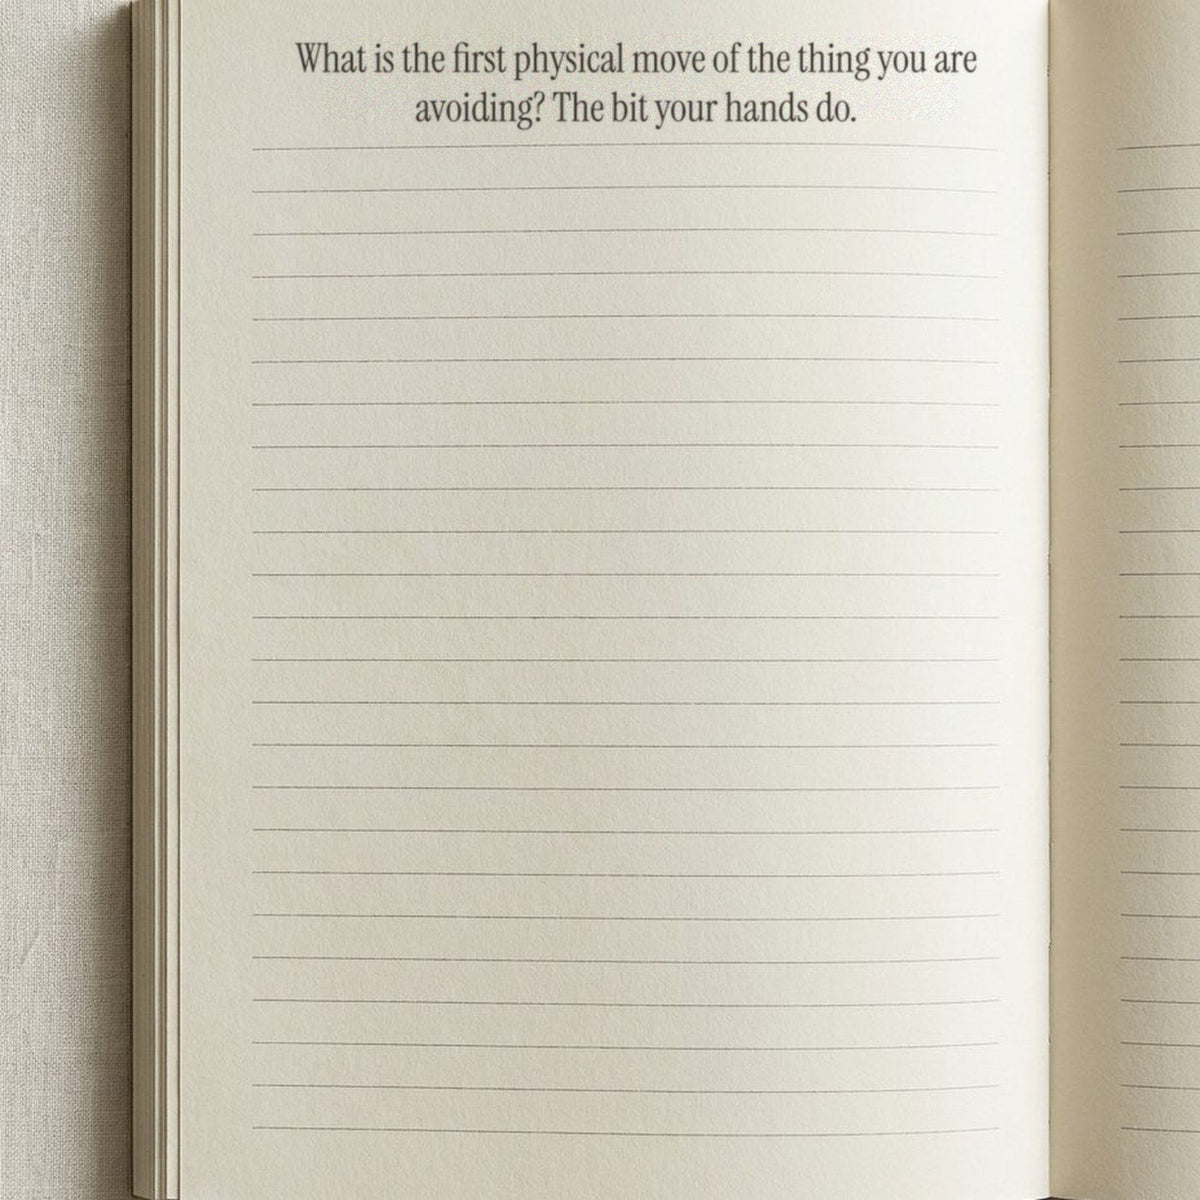 What is the first physical move of the thing you are
avoiding? The bit your hands do.